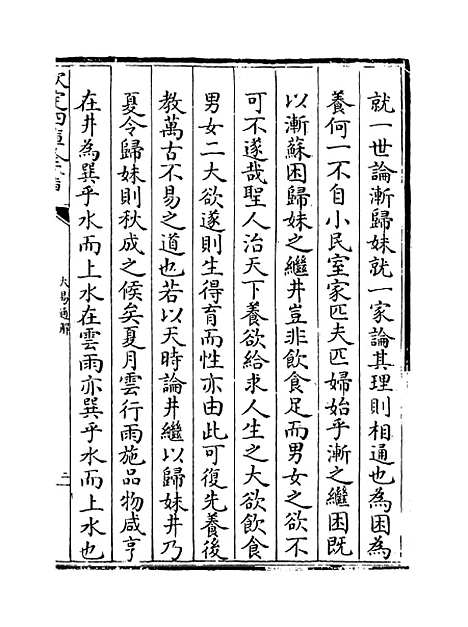 就一世論漸歸妹就一家論其理則相通也為困為
養何一不自小民室家匹夫匹婦始乎漸之繼困既
以漸蘇困歸妹之繼井豈非飲食足而男女之欲不
可不遂哉聖人治天下養欲給求人生之大欲飲食
男女二大欲遂則生得育而性亦由此可復先養後
教萬古不易之道也若以天時論井繼以歸妹井乃
夏令歸妹則秋成之候矣夏月雲行雨施品物咸亨
在井為巽乎水而上水在雲雨亦巽乎水而上水也
欽定四庫全書
大易通解
二